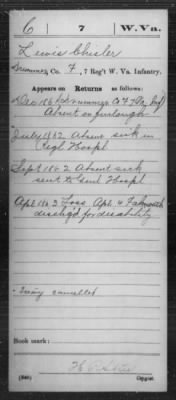 C | 7 | W. Va.
Lewis Chisler
Drummer, Co. F, 7 Reg't W. Va. Infantry.
Appears on Returns as follows:
Dec 186 Drummer Co F 7 Va Inf
Absent on furlough
July 1862 Absent sick in
Regl Hospl
Sept 1862 Absent sick
sent to Genl Hospl
Apl 1863 Loss Apl. 4 Falmouth
dischg'd for disability
cancelled
Book mark:
(546) Copyist.